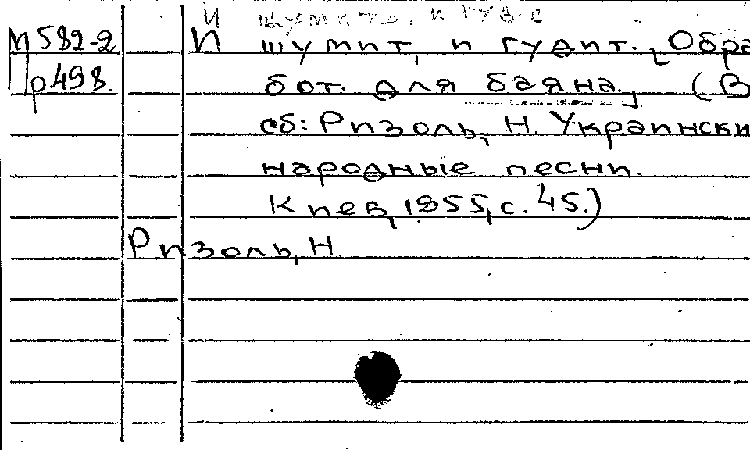 И шумит, и гуде
М582-2 И шумит, и гудит. [Обра
р498. бот. для баяна.] (В
сб: Ризоль, Н. Украински
народные песни.
Киев, 1955, с. 45.)
Ризоль, Н.